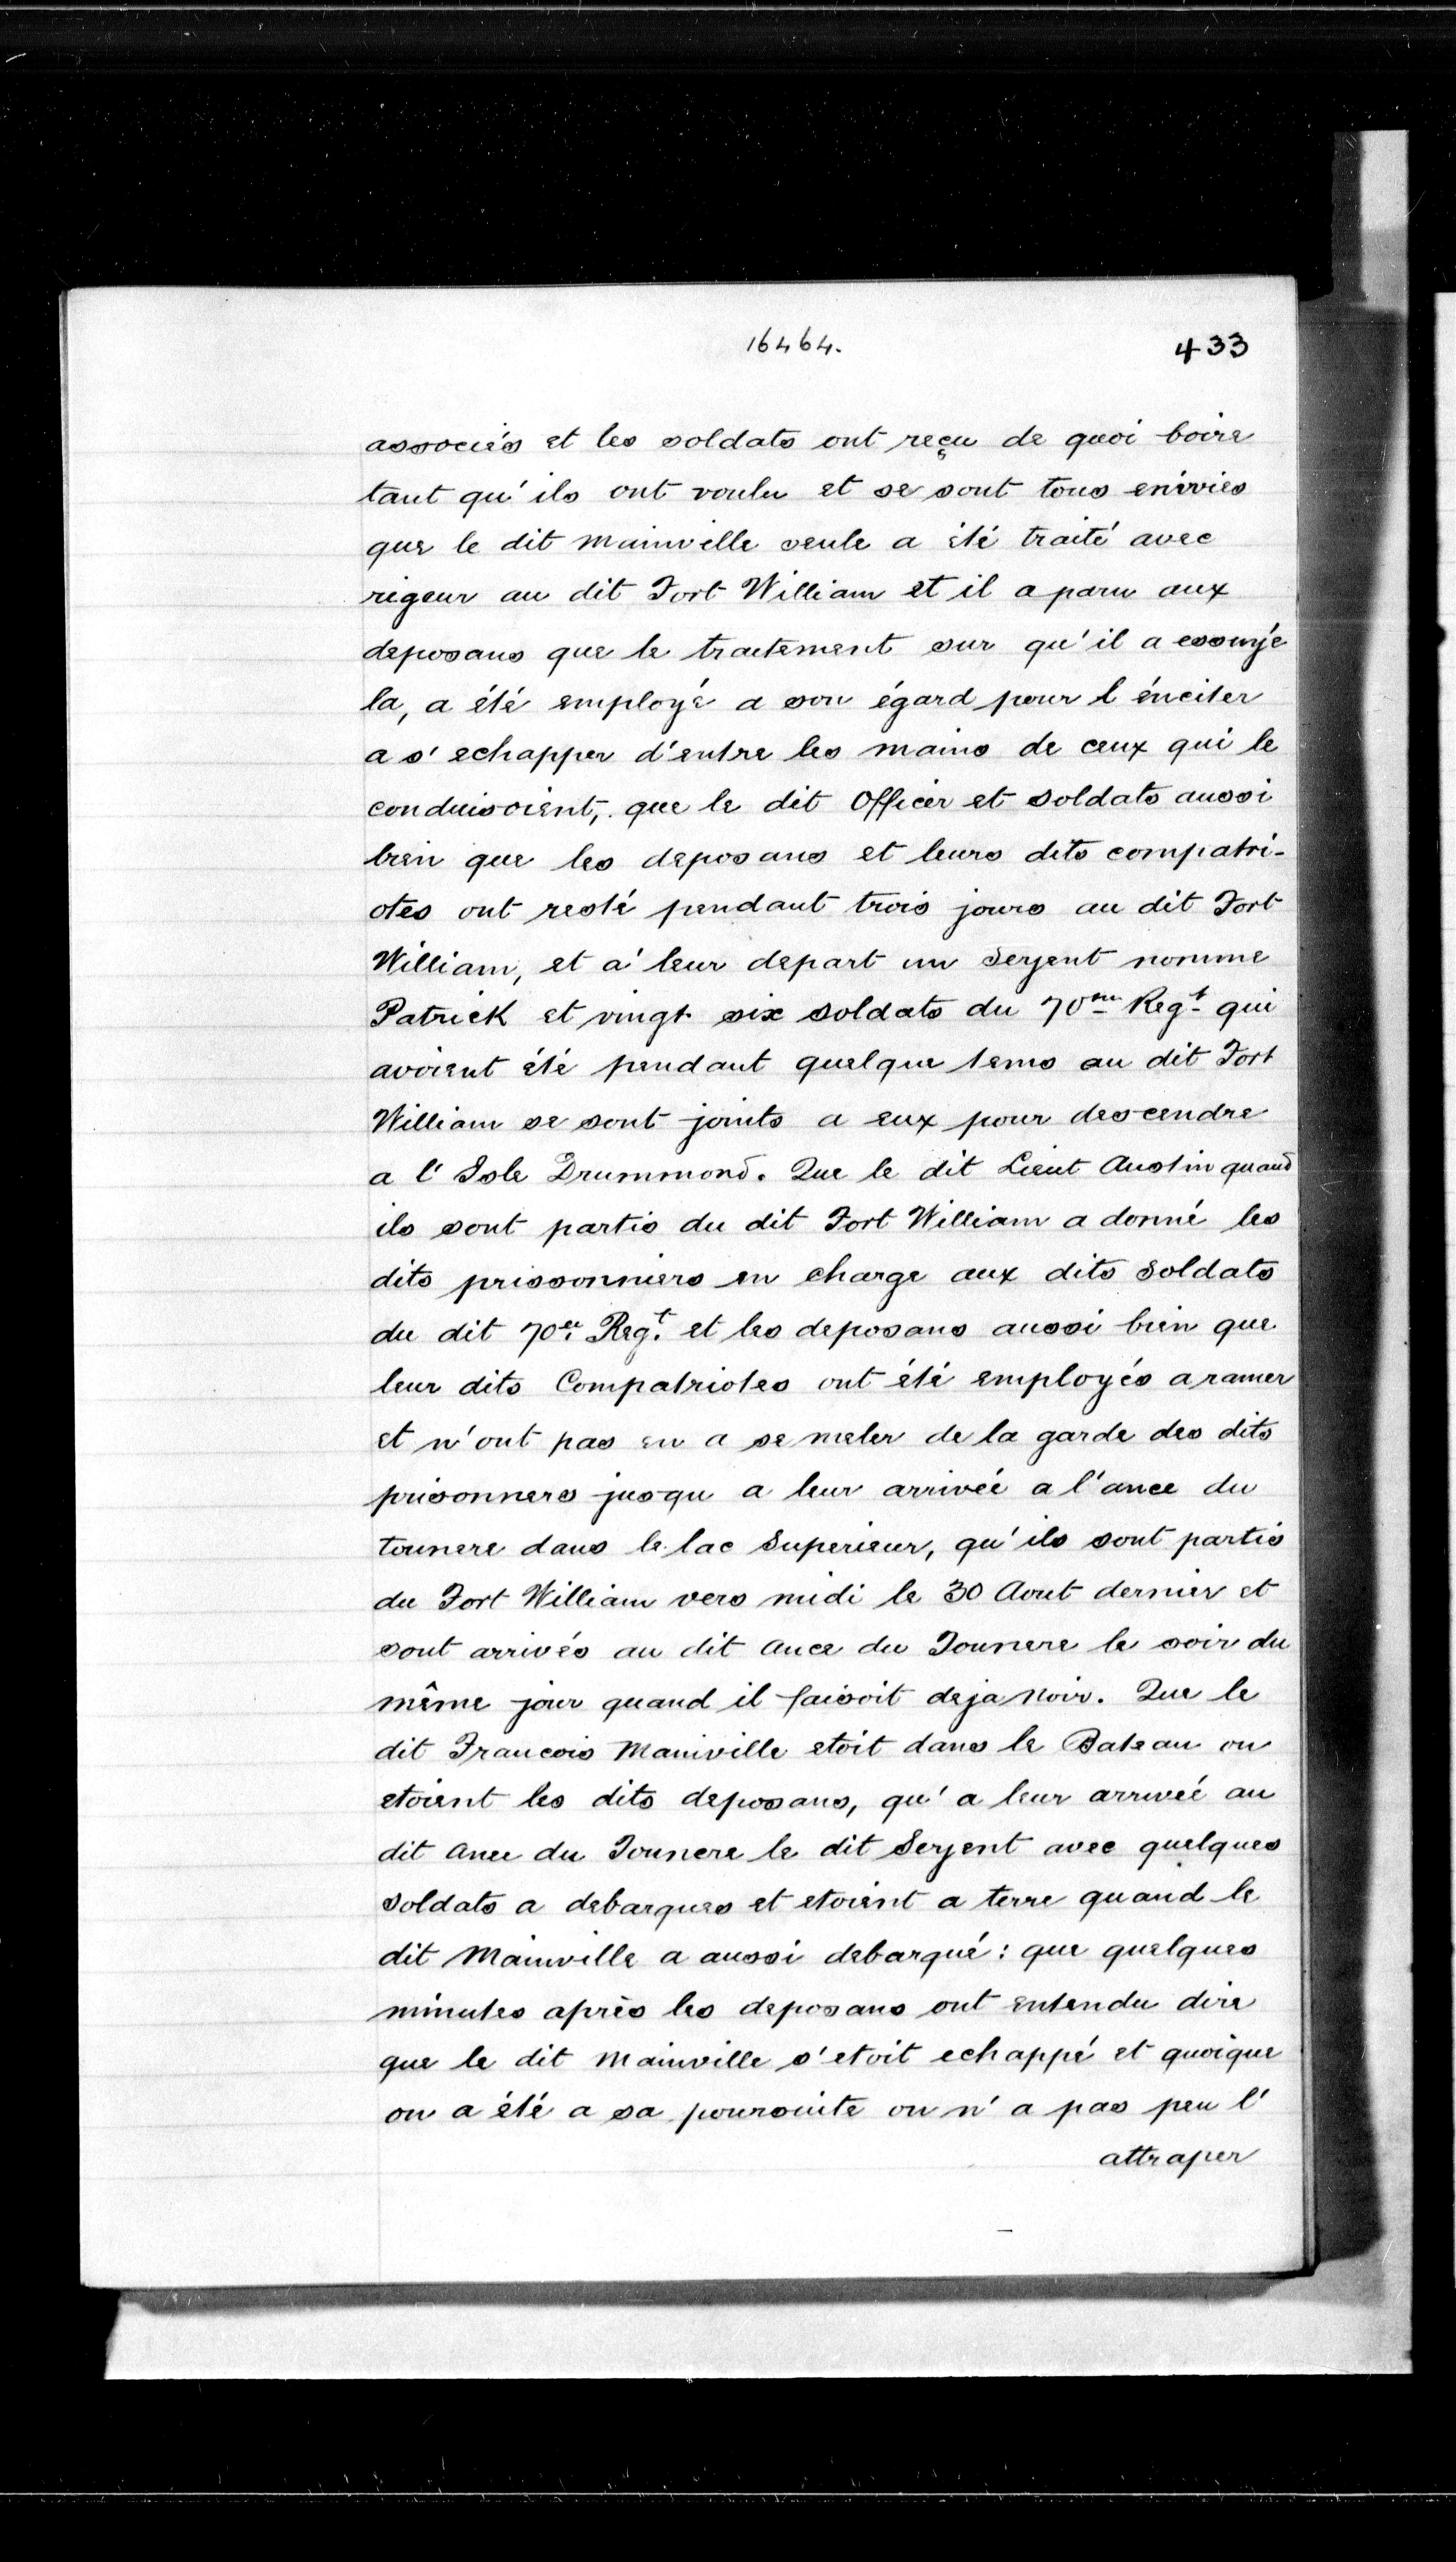 16464.
433
associés et les soldats ont reçu de quoi boire
tant qu'ils ont voulu et se sont tous enivries
que le dit Mainville seule a été traité avec
rigeur au dit Fort William et il a paru aux
deposans que le traitement sur qu'il a essuyé
la, a été employé a son égard pour l énciter
a s'echapper d'entre les mains de ceux qui le
conduisoient, que le dit Officer et soldats aussi
bien que les deposans et leurs dits compatri-
otes ont resté pendant trois jours au dit Fort
William, et a' leur depart un Serjent nomme
Patrick et vingt six soldats du 70me Regt qui
avoient été pendant quelque tems au dit Fort
William se sont joints a eux pour descendre
a l'Isle Drummond. Que le dit Lieut Austin quand
ils sont partis du dit Fort William a donné les
dits prissonniers en charge aux dits soldats
du dit 70er Regt. et les deposans aussi bien que
leur dits Compatriotes ont été employés a ramer
et n'ont pas eu a se meler de la garde des dits
prisonners jusqu a leur arrivée a l'ance du
tounere dans le lac Superieur, qu'ils sont partis
du Fort William vers midi le 30 Aout dernier et
sont arrivés au dit Ance du Tounere le soir du
même jour quand il faisoit deja noir. Que le
dit Francois Mainville etoit dans le Bateau ou
etoient les dits deposans, qu'a leur arrivée au
dit Ance du Tounere le dit Serjent avec quelques
soldats a debarques et etoient a terre quand le
dit Mainville a aussi debarqué: que quelques
minutes après les deposans ont entendu dire
que le dit Mainville s'etoit echappé et quoique
on a été a sa poursuite on n'a pas peu l'
attraper